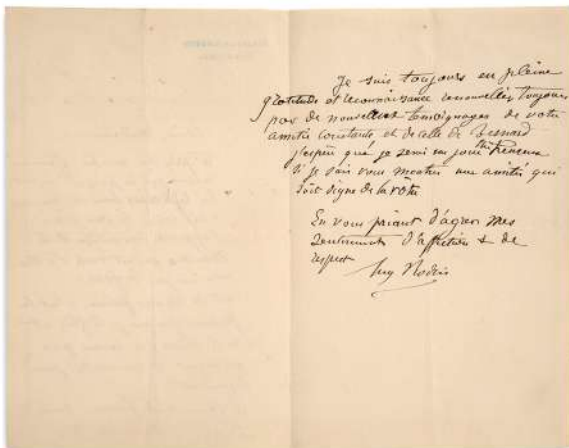 Je suis toujours en pleine
gratitude et reconnaissance renouvellée toujours
par de nouveaux temoignages de votre
amitié constante et de celle de Besnard
j'espère que je serai un jour
si je sais vous montrer une amitié qui
soit digne de la vôtre
En vous priant d'agréer mes
sentiments d'affection & de
respect
Aug Rodin